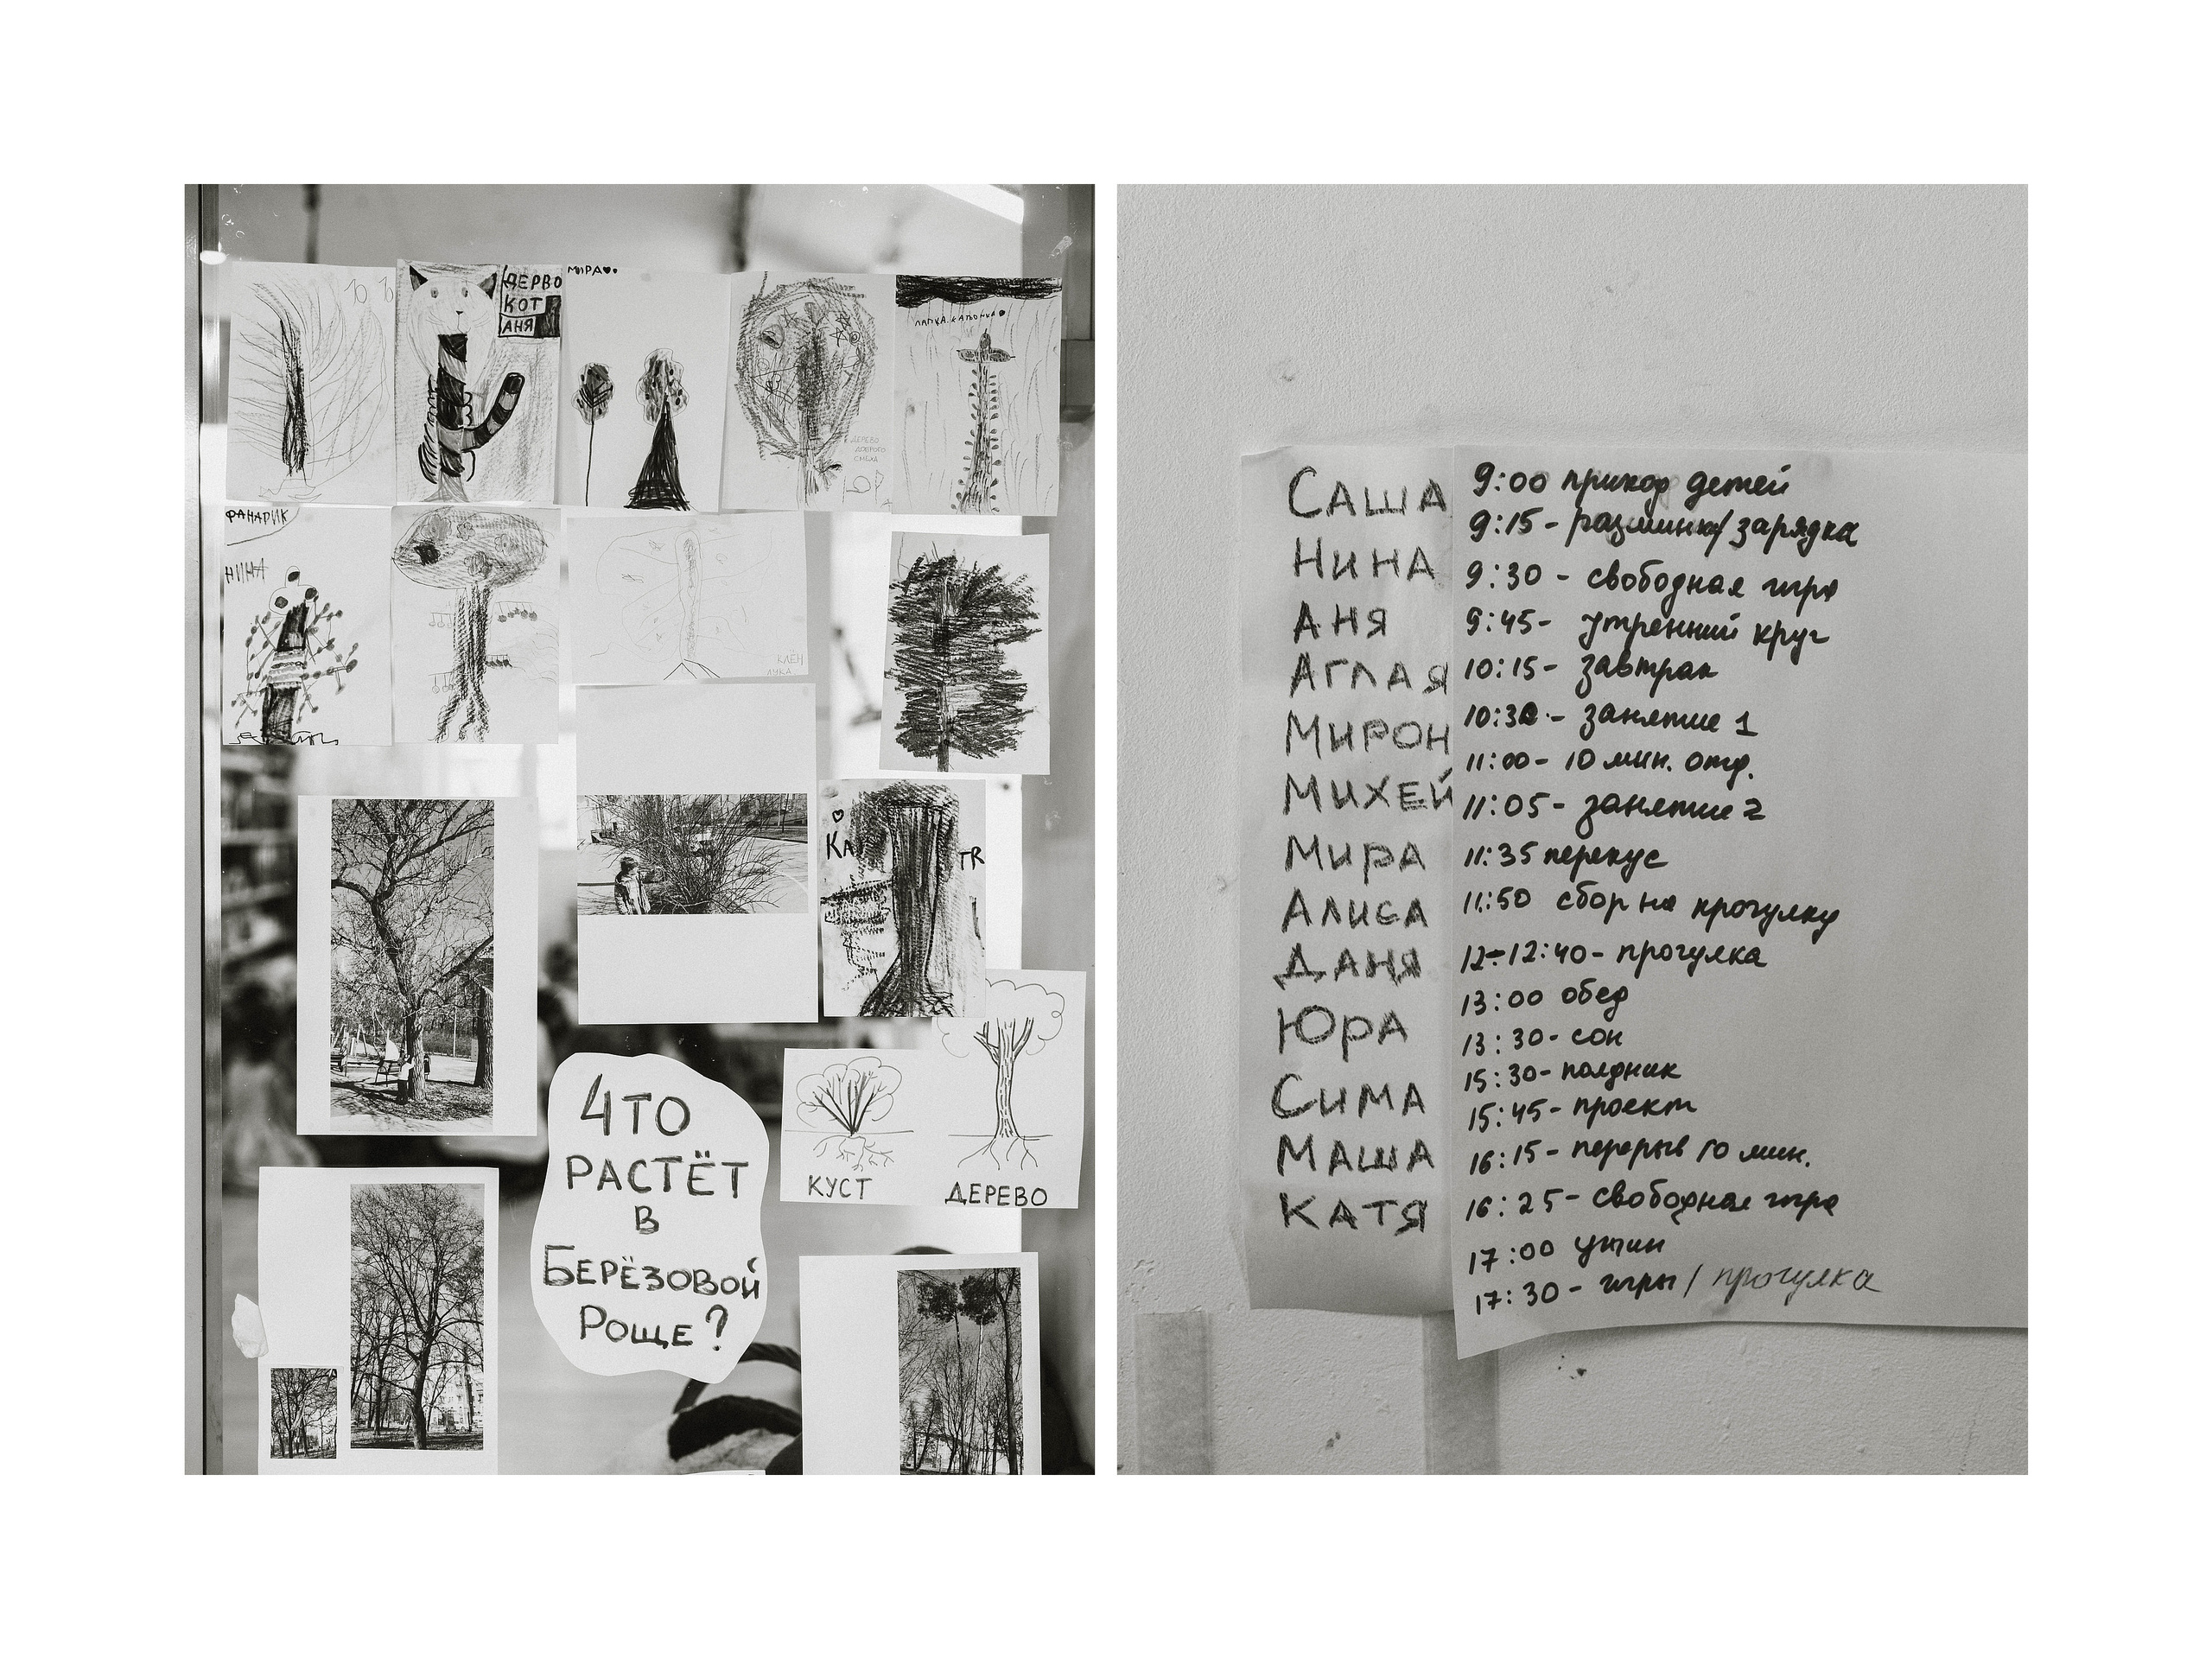 ДЕРВО
КОТ
АНЯ
МИРА
ДЕРЕВО
ДОБРОГО
ФАНАРИК
НИНА
КЛЁН
ЛУКА
КА
TR
КУСТ
ДЕРЕВО
ЧТО
РАСТЁТ
В
БЕРЁЗОВОЙ
РОЩЕ?
САША
НИНА
АНЯ
АГЛАЯ
МИРОН
МИХЕЙ
МИРА
АЛИСА
ДАНЯ
ЮРА
СИМА
МАША
КАТЯ
9:00 прихор детей
9:15 - разминка/зарядка
9:30 - свободная игра
9:45 - утренний круг
10:15 - завтрак
10:30 - занятие 1
11:00 - 10 мин. отд.
11:05 - занятие 2
11:35 перекус
11:50 сбор на прогулку
12-12:40 - прогулка
13:00 обед
13:30 - сон
15:30 - полдник
15:45 - проект
16:15 - перерыв 10 мин.
16:25 - свободная игра
17:00 ужин
17:30 - игры / прогулка